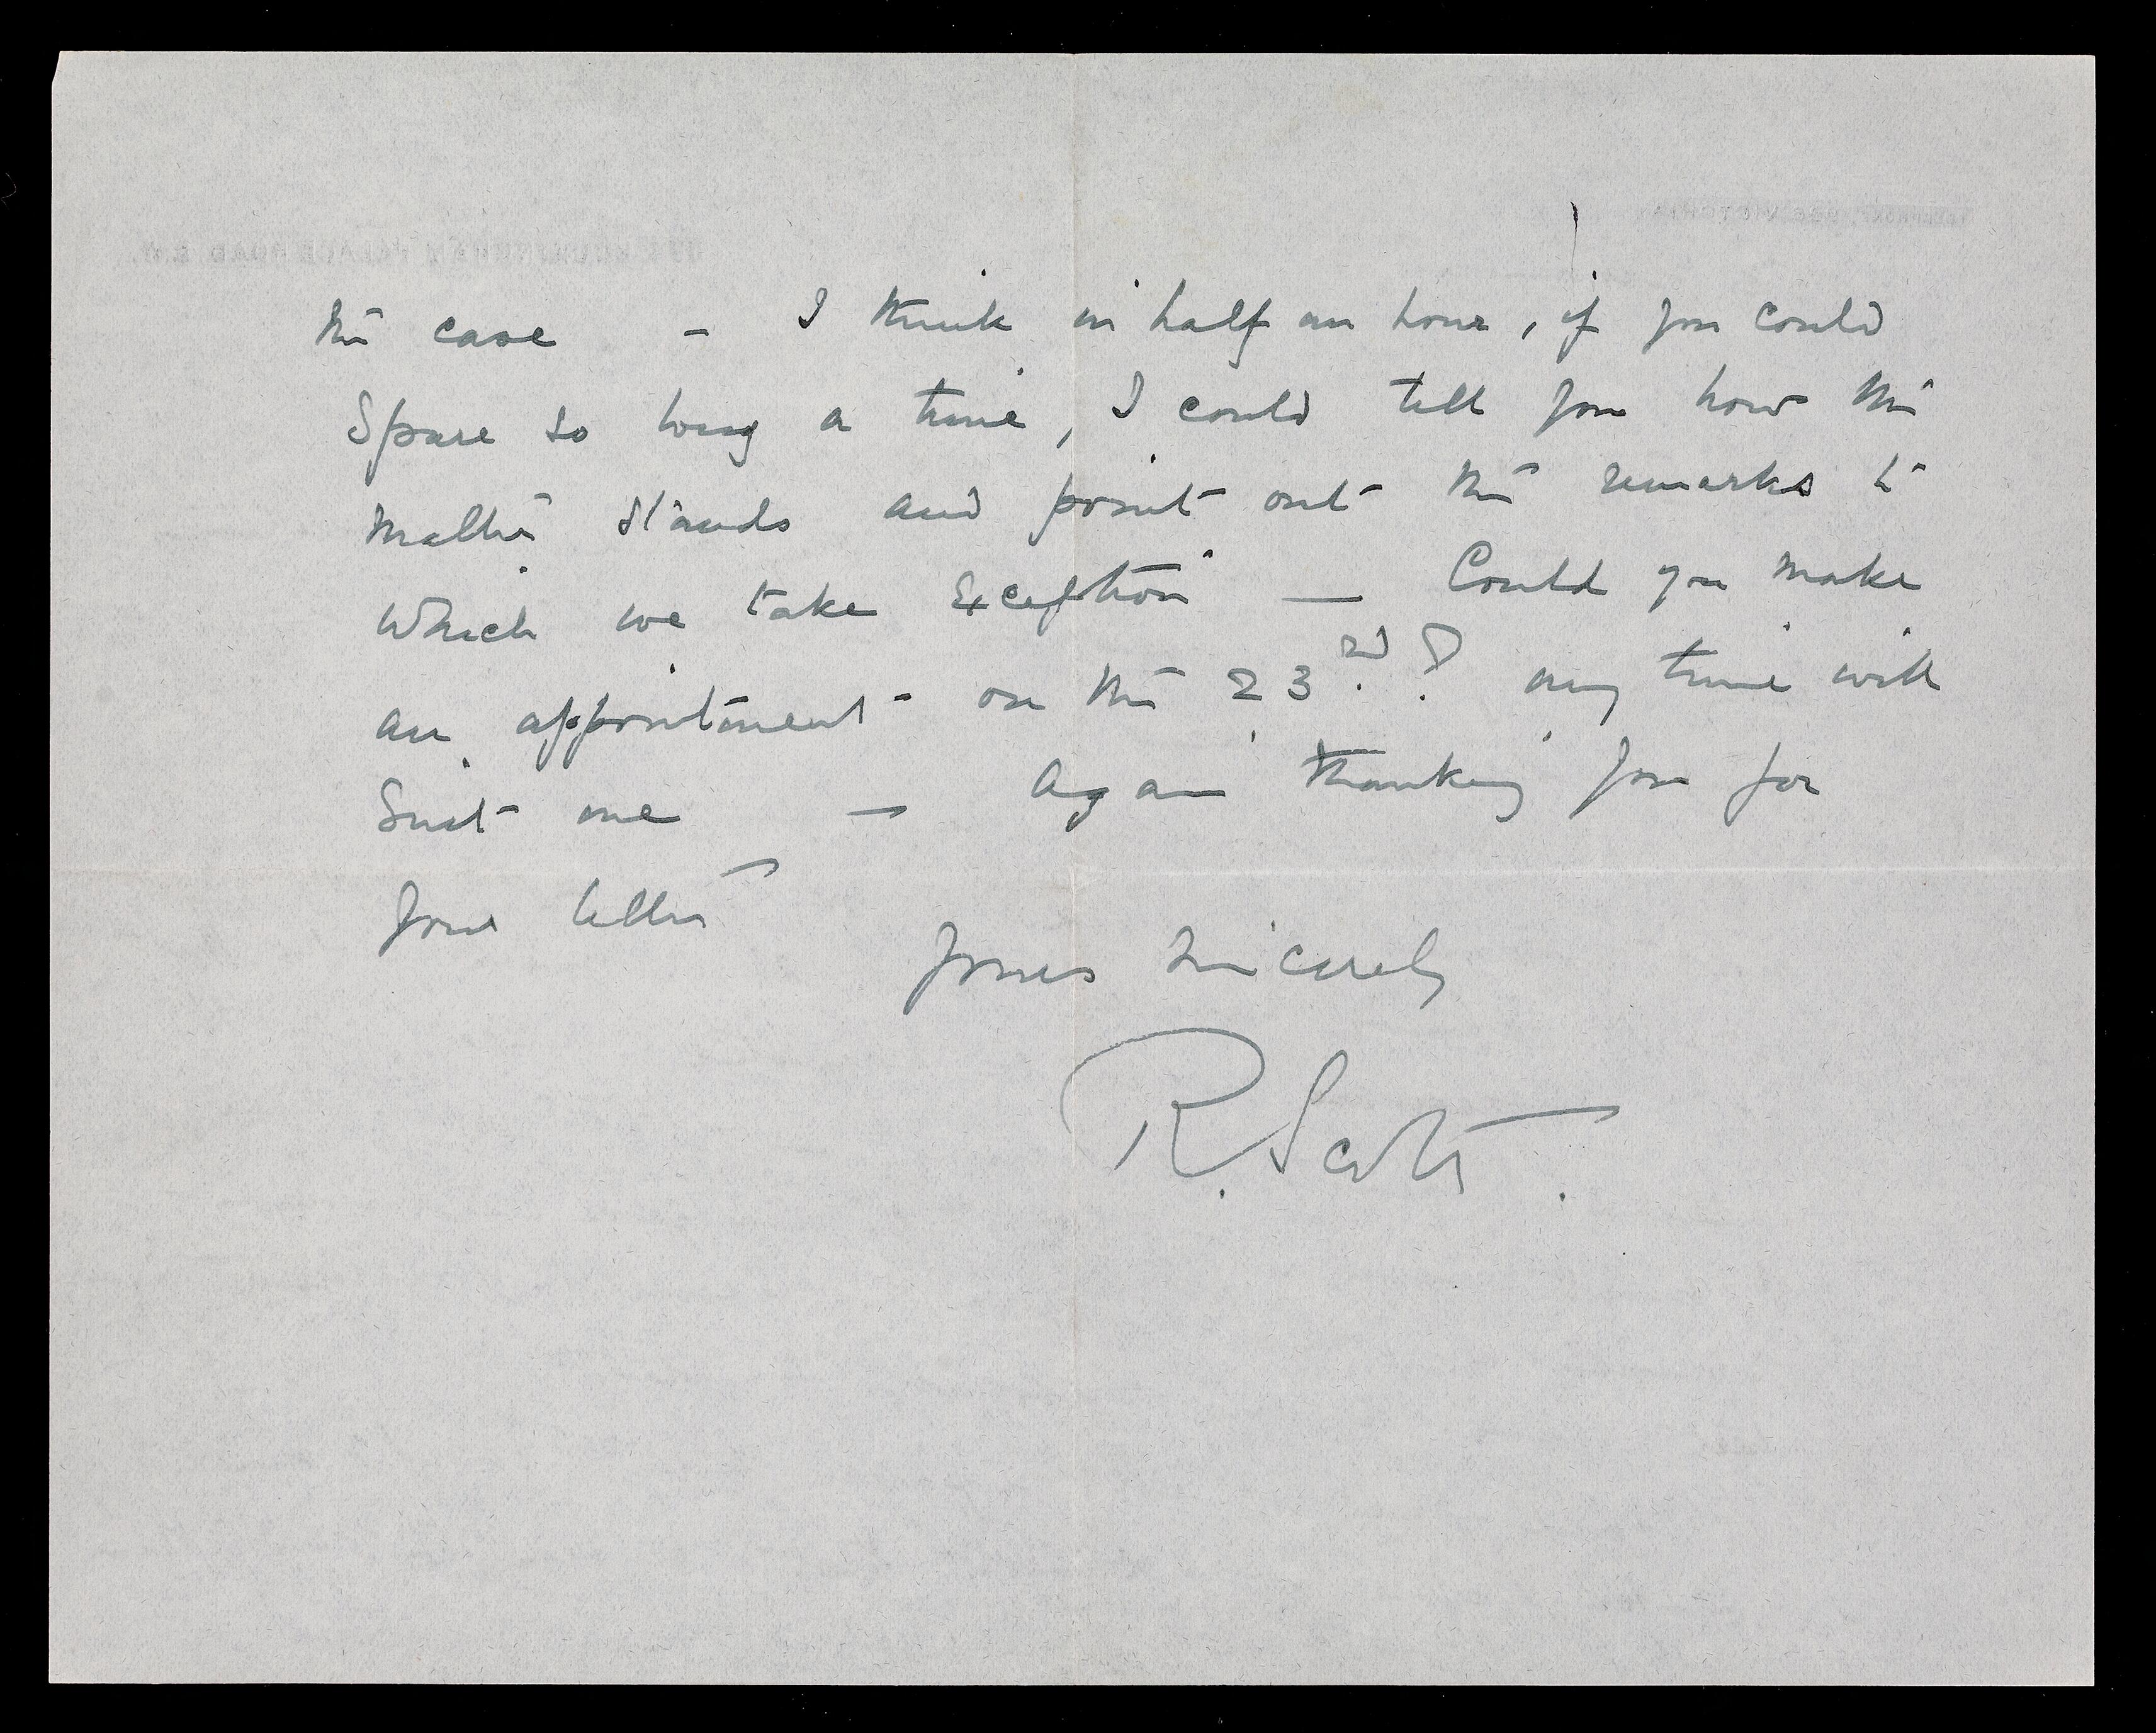 the case - I think in half an hour, if you could
spare so long a time, I could tell you how the
matter stands and point out the remarks to
which we take exception — Could you make
an appointment on the 23rd? any time will
suit me — Again thanking you for
your letter
Yours sincerely
R. Scott.
174 BUCKINGHAM PALACE ROAD S.W.
VICTORIA